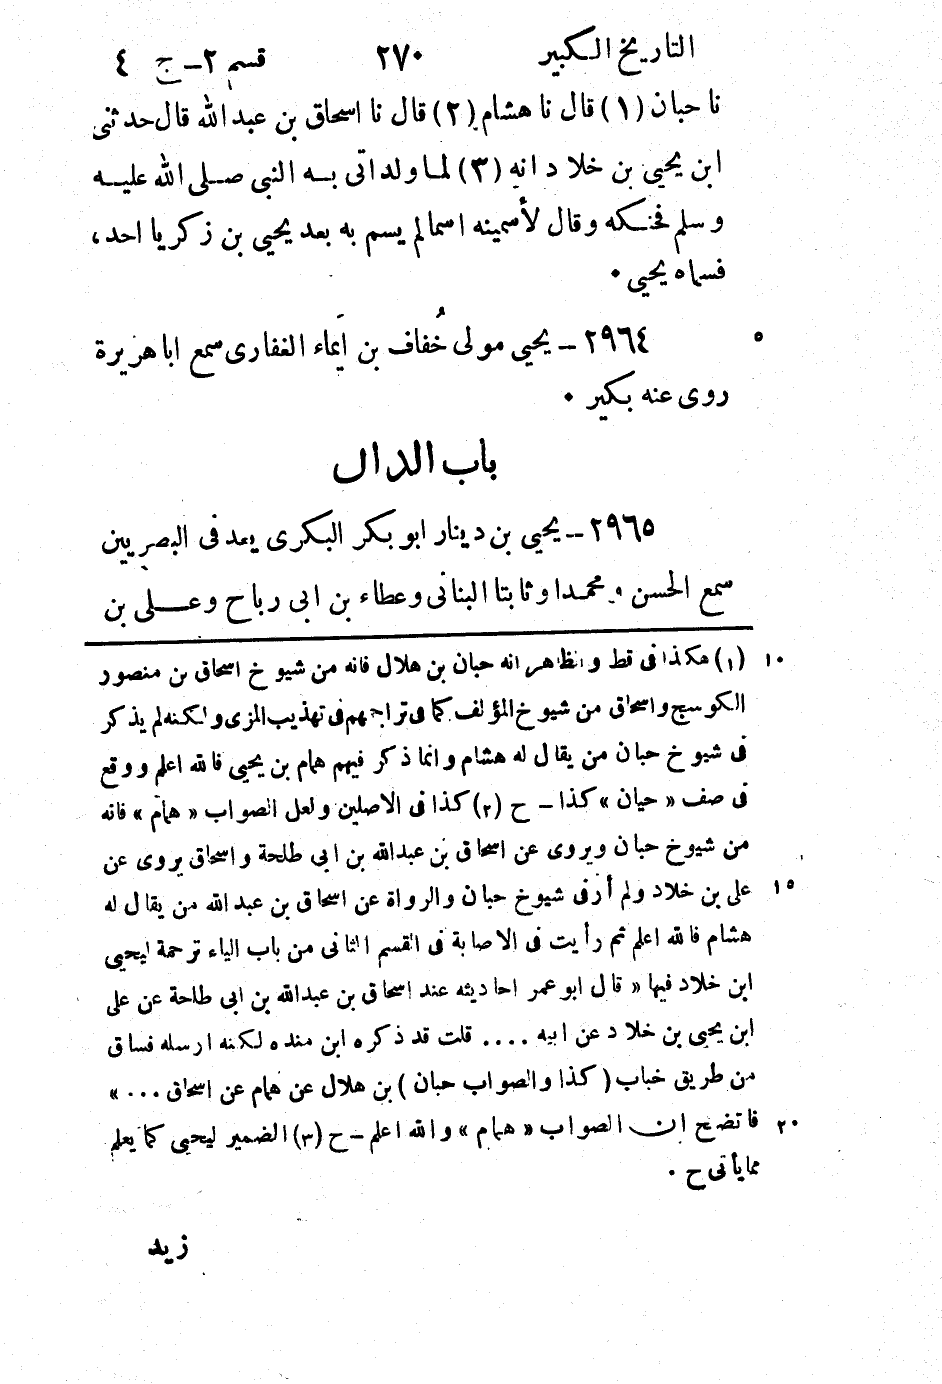 التاريخ الكبير ٢٧٠ قسم ٢ – ج ٤
نا حبان (١) قال نا هشام (٢) قال نا اسحاق بن عبد الله قال حدثنى
ابن يحيى بن خلاد انه (٣) لما ولد اتى به النبى صلى الله عليه
وسلم فحنكه وقال لأسمينه اسما لم يسم به بعد يحيى بن زكريا احد،
فسماه يحيى ٠
٢٩٦٤ – يحيى مولى خُفاف بن اَيماء الغفارى سمع ابا هريرة ٥
روى عنه بكير ٠
باب الدال
٢٩٦٥ – يحيى بن دينار ابو بكر البكرى يعد فى البصريين
سمع الحسن ومحمدا وثابتا البنانى وعطاء بن ابى رباح وعلى بن
(١) هكذا فى قط والظاهر انه حبان بن هلال فانه من شيوخ اسحاق بن منصور ١٠
الكوسج واسحاق من شيوخ المؤلف كما فى تراجمهم فى تهذيب المزى ولكنه لم يذكر
فى شيوخ حبان من يقال له هشام وانما ذكر فيهم همام بن يحيى فالله اعلم ووقع
فى صف « حيان » كذا – ح (٢) كذا فى الاصلين ولعل الصواب « همام » فانه
من شيوخ حبان ويروى عن اسحاق بن عبدالله بن ابى طلحة واسحاق يروى عن
على بن خلاد ولم أر فى شيوخ حبان والرواة عن اسحاق بن عبد الله من يقال له ١٥
هشام فالله اعلم ثم رأيت فى الاصابة فى القسم الثانى من باب الياء ترجمة ليحيى
ابن خلاد فيها « قال ابو عمر احاديثه عند اسحاق بن عبدالله بن ابى طلحة عن على
ابن يحيى بن خلاد عن ابيه .... قلت قد ذكره ابن منده لكنه ارسله فساق
من طريق خباب (كذا والصواب حبان) بن هلال عن همام عن اسحاق ... »
فاتضح ان الصواب « همام » والله اعلم – ح (٣) الضمير ليحيى كما يعلم ٢٠
مما يأتى ح ٠
زيد